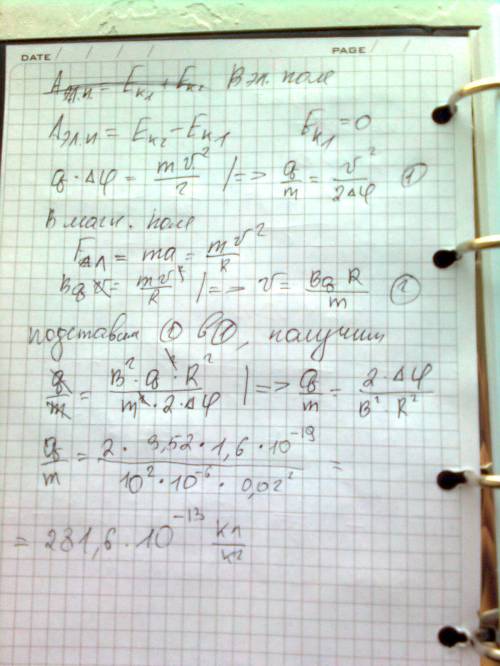 DATE PAGE
Aэл.п. = Eк1 + Eк2 В эл. поле
Aэл.п = Eк2 - Eк1 Eк1 = 0
q · Δφ = mv²/2 | => q/m = v²/2Δφ ①
В магн. поле
FАл = ma = mv²/R
Bqv = mv²/R | => v = BqR/m ②
подставим ② в ①, получим
q/m = B² · q² · R²/m² · 2 · Δφ | => q/m = 2 · Δφ/B² · R²
q/m = 2 · 3,52 · 1,6 · 10⁻¹⁹/10² · 10⁻⁶ · 0,02² =
= 281,6 · 10⁻¹³ Кл/кг